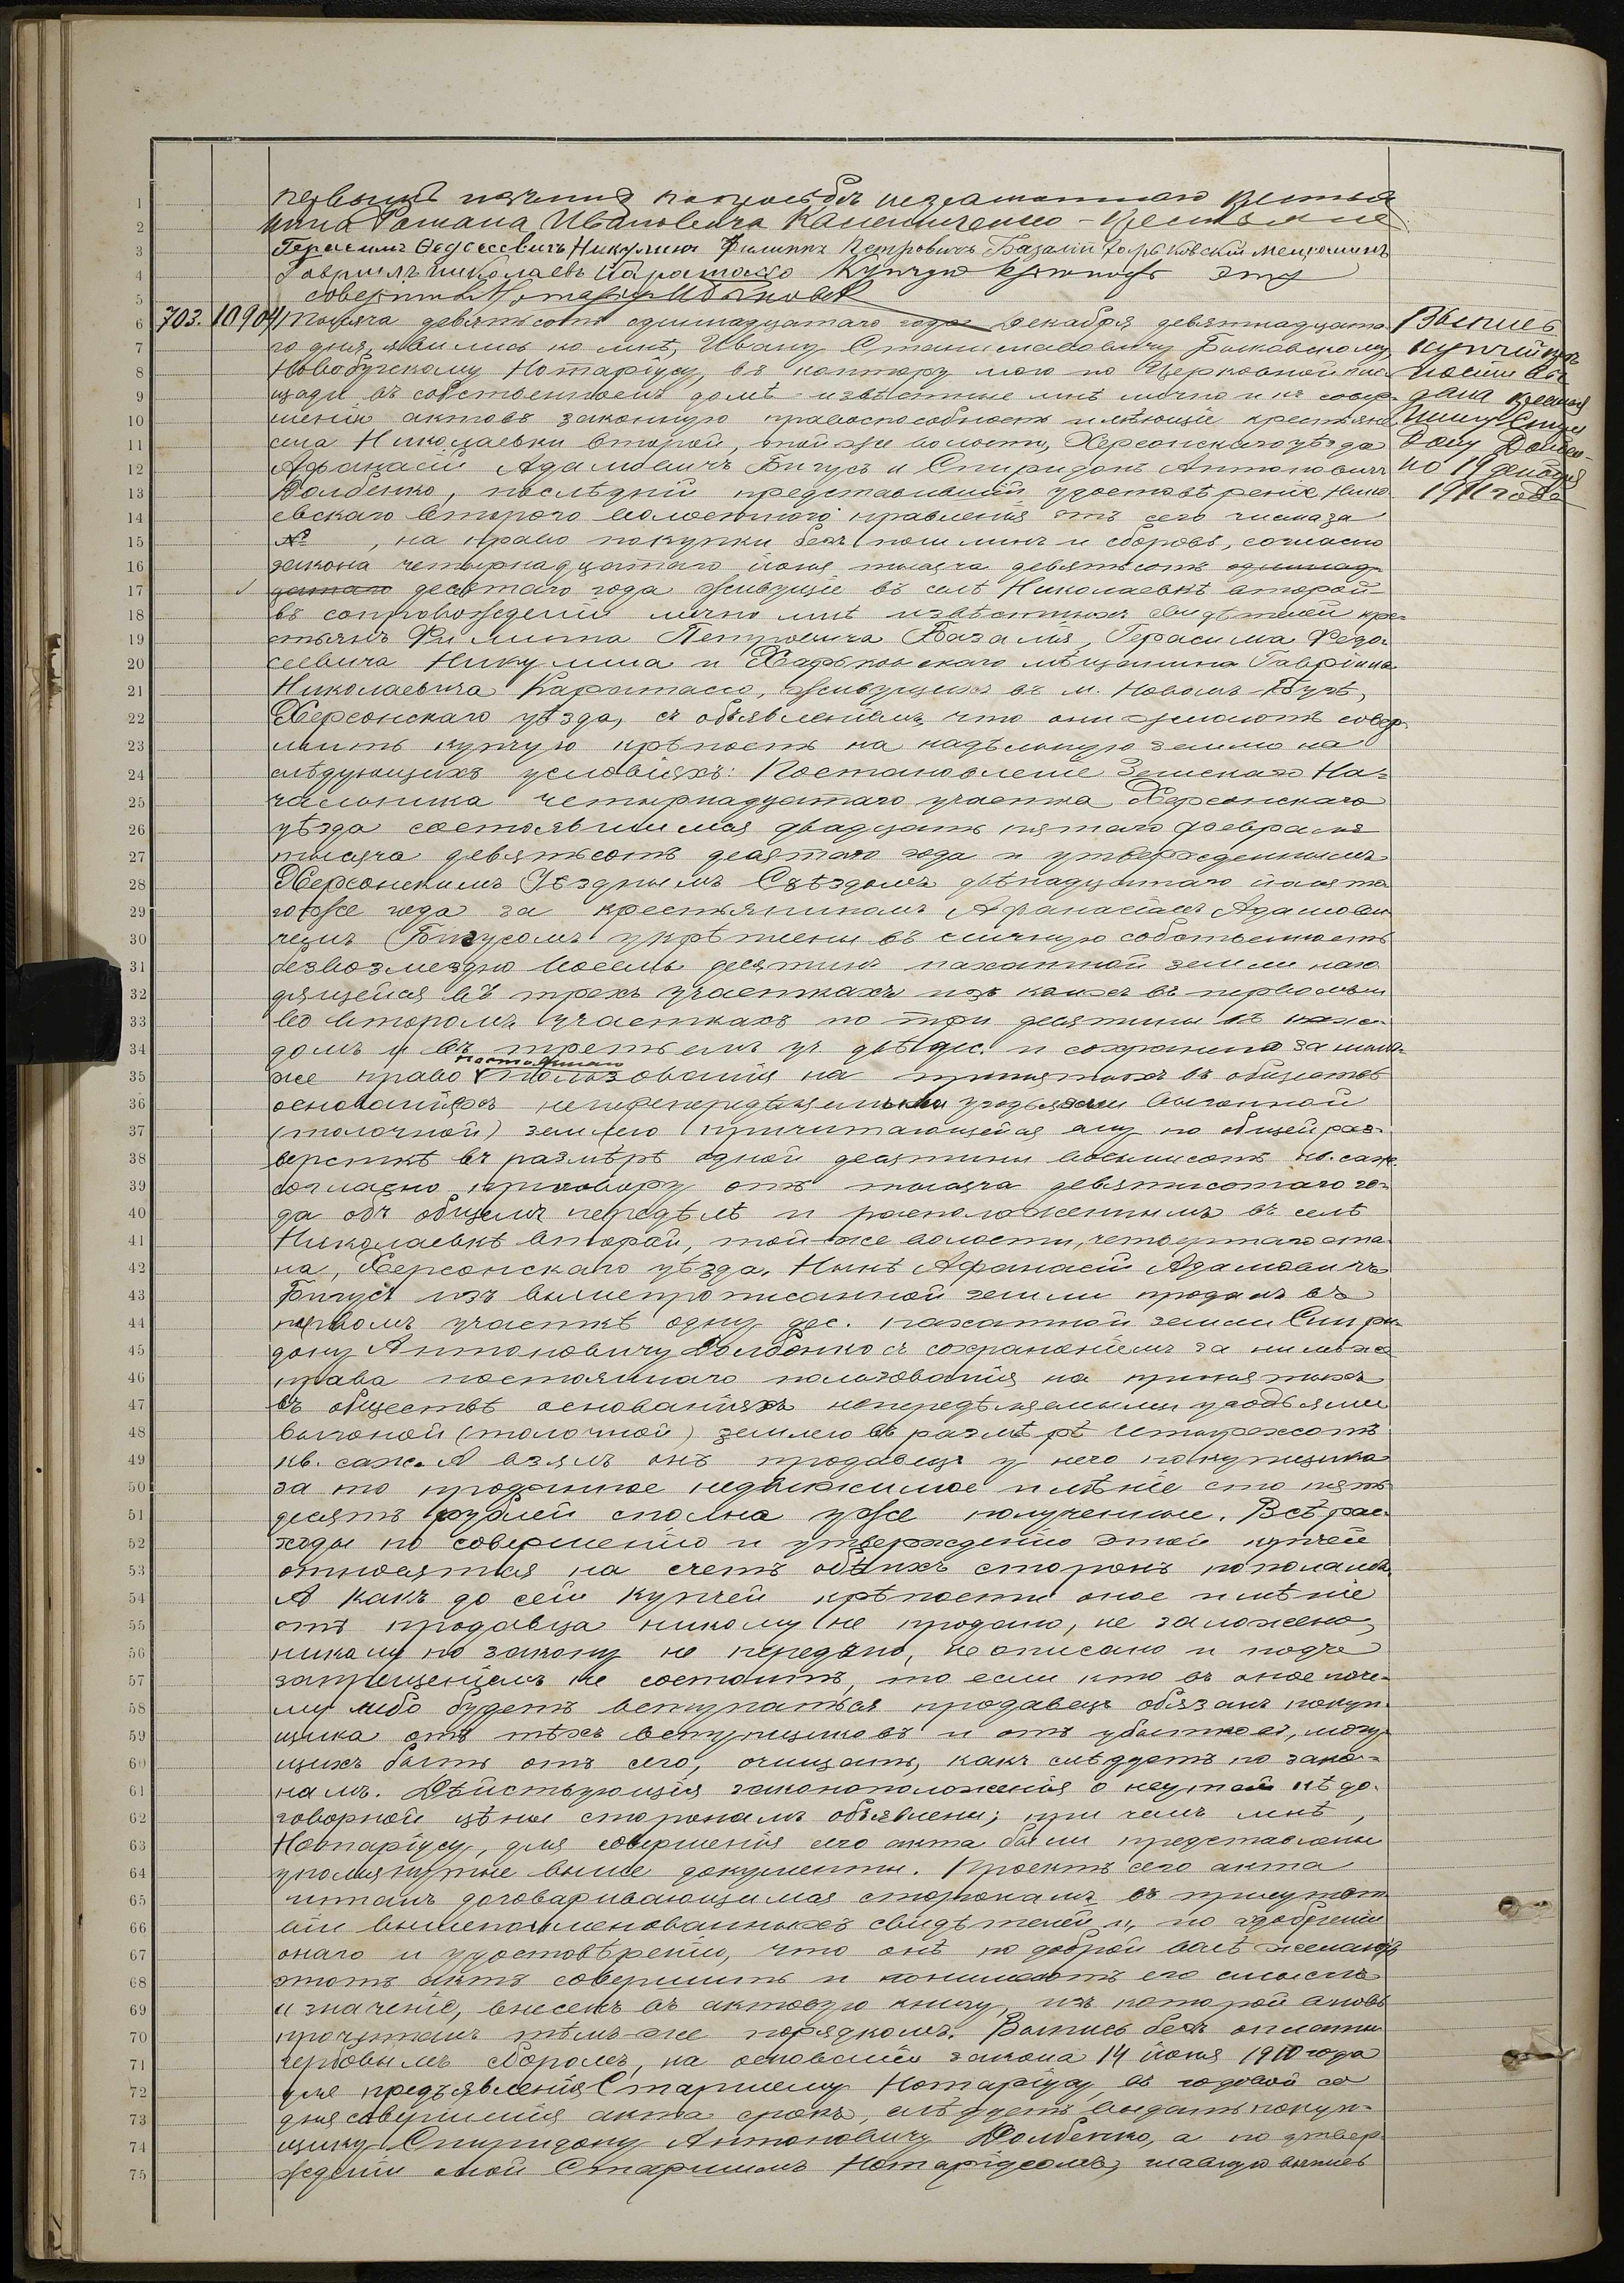 нина Романа Ивановича
Герасимъ Ѳедосеевичъ Никулинъ Филиппъ Петровичъ Базалій Харьковскій мещанинъ
Гавриилъ Николаевъ Каратассо Купчую крѣпость эту
совершилъ Нотаріусъ
703. 10904 Тысяча девятьсотъ одиннадцатаго года Декабря девятнадцата-
го дня, явились ко мнѣ, Ивану Станиславовичу Быковскому,
Новобугскому Нотаріусу, въ контору мою по Церковной пло-
щади въ собственномъ домѣ извѣстные мнѣ лично и къ совер-
шенію актовъ законную правоспособность имѣющіе крестьяне
села Николаевки второй, той же волости, Херсонскаго уѣзда
Афанасій Адамовичъ Бигусъ и Спиридонъ Антоновичъ
Долбенко, послѣдній представившій удостовѣреніе Никола
евскаго второго волостного правленія отъ сего числа за
№ , на право покупки безъ пошлинъ и сборовъ, согласно
закона четырнадцатаго іюня тысяча девятьсотъ одиннад-
цатаго десятаго года живущіе въ селѣ Николаевкѣ второй
въ сопровожденіи лично мнѣ извѣстныхъ свидѣтелей кре-
стьянъ Филиппа Петровича Базалія, Герасима Федо-
сеевича Никулина и Харьковскаго мѣщанина Гавріила
Николаевича Каратассо, живущихъ въ м. Новомъ-Бугѣ,
Херсонскаго уѣзда, съ объявленіемъ, что они желаютъ совер-
шить купчую крѣпость на надѣльную землю на
слѣдующихъ условіяхъ: Постановленіе Земскаго На-
чальника четырнадцатаго участка Херсонскаго
уѣзда состоявшимся двадцать пятаго февраля
тысяча девятьсотъ десятаго года и утвержденнымъ
Херсонскимъ Уѣзднымъ Съѣздомъ двѣнадцатаго іюля то-
го же года за крестьяниномъ Афанасіемъ Адамови
чемъ Бигусомъ укрѣплены въ личную собственность
безвозмездно восемь десятинъ пахатной земли нахо
дящейся въ трехъ участкахъ изъ коихъ въ первомъ и
во второмъ участкахъ по три десятины въ каж-
домъ и въ третьемъ уч. двѣ дес. и сохранено за нимъ-
же право постояннаго пользованія на принятыхъ въ обществѣ
основаніяхъ непередѣляемыми угодьями выгонной
(толочной) землею причитающейся ему по общей раз-
верстке въ размѣрѣ одной десятины восемисотъ кв. саж.
согласно приговору отъ тысяча девятисотаго го-
да объ общемъ передѣлѣ и расположеннымъ въ селѣ
Николаевкѣ второй, той-же волости, четвертаго ста-
на, Херсонскаго уѣзда. Нынѣ Афанасій Адамовичъ
Бигусъ изъ вышепрописанной земли продалъ въ
первомъ участкѣ одну дес. пахатной земли Спири-
дону Антоновичу Долбенко съ сохраненіемъ за нимъ же
права постояннаго пользованія на принятыхъ
въ обществѣ основаніяхъ непередѣляемыми угодьями
выгоной (толочной) землею въ размѣрѣ четырехсотъ
кв. саж. А взялъ онъ продавецъ у него покупщика
за то проданное недвижимое имѣніе сто пять
десятъ рублей сполна уже полученные. Всѣ рас-
ходы по совершенію и утвержденію этой купчей
относятся на счетъ обѣихъ сторонъ пополамъ.
А какъ до сей купчей крѣпости оное имѣніе
отъ продавца никому не продано, не заложено,
никому по закону не передано, не описано и подъ
запрещеніемъ не состоитъ, то если кто въ оное поче-
му либо будетъ вступаться продавецъ обязанъ покуп-
щика отъ тѣхъ вступщиковъ и отъ убытковъ, могу-
щихъ быть отъ сего, очищать, какъ слѣдуетъ по зако-
намъ. Дѣйствующія законоположенія о неутайкѣ до-
говорной цѣны сторонамъ объявлены; при чемъ мнѣ,
Нотаріусу, для совершенія сего акта были представлены
упомянутые выше документы. Проектъ сего акта
читанъ договаривающимся сторонамъ въ присутст-
віи вышепоименованныхъ свидѣтелей и, по одобреніи
онаго и удостовѣреніи, что онѣ по доброй волѣ желаютъ
этотъ актъ совершить и понимаютъ его смыслъ
и значеніе, внесенъ въ актовую книгу, изъ которой вновь
прочитанъ тѣмъ-же порядкомъ. Выпись безъ оплаты
гербовымъ сборомъ, на основаніи закона 14 іюня 1910 года
для предъявленія Старшему Нотаріусу въ годовой со
дня совершенія акта срокъ, слѣдуетъ выдать покуп-
щику Спиридону Антоновичу Долбенко, а по утвер-
жденіи оной Старшимъ Нотаріусомъ, главную выпись
Выпись
купчей крѣ
пости вы
дана крестья
нину Спири
дону Долбен-
ко 19 декабря
1911 года
1
2
3
4
5
6
7
8
9
10
11
12
13
14
15
16
17
18
19
20
21
22
23
24
25
26
27
28
29
30
31
32
33
34
35
36
37
38
39
40
41
42
43
44
45
46
47
48
49
50
51
52
53
54
55
56
57
58
59
60
61
62
63
64
65
66
67
68
69
70
71
72
73
74
75